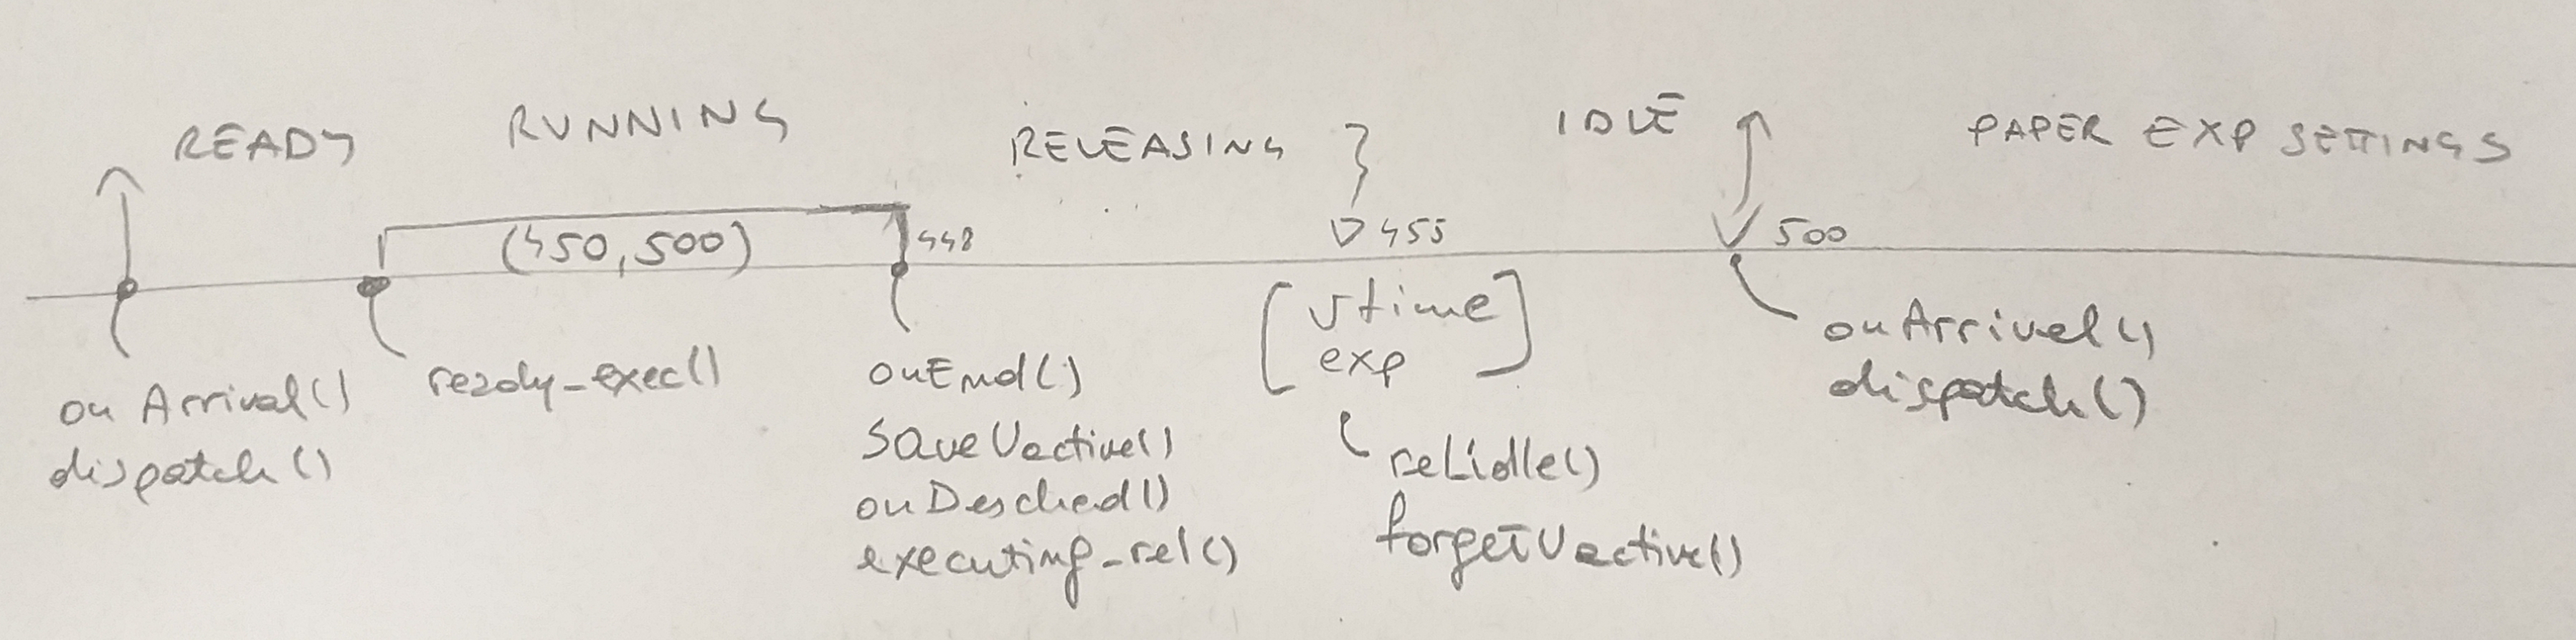 READY
RUNNING
RELEASING
IDLE
PAPER EXP SETTINGS
(450,500)
448
455
500
onArrival()
dispatch()
ready_exec()
onEnd()
saveUactive()
onDesched()
executing_rel()
vtime
exp
rel_idle()
forgetUactive()
onArrival()
dispatch()